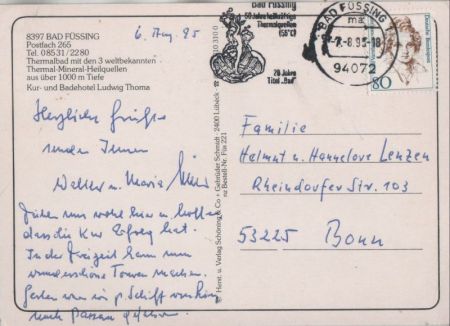 8397 BAD FÜSSING
Postfach 265
Tel. 08531/2280
Thermalbad mit den 3 weltbekannten
Thermal-Mineral-Heilquellen
aus über 1000 m Tiefe
Kur- und Badehotel Ludwig Thoma
6. Aug. 95
Bad Füssing
50 Jahre heilkräftige
Thermalquellen
(56°C)
20 Jahre
Titel „Bad"
BAD FÜSSING
-7.-8.95-18
94072
Deutsche Bundespost
80
Herzliche Grüße
senden Ihnen
Walter u. Maria
Fühlen uns wohl hier u. hoffen
dass die Kur Erfolg hat.
In der Freizeit kann man
wunderschöne Touren machen.
Gestern waren wir p. Schiff
nach Passau gefahren.
Herst. u. Verlag Schöning & Co + Gebrüder Schmidt · 2400 Lübeck
Bestell-Nr. Füs 221
Familie
Helmut u. Hannelore Lenzen
Rheindorfer Str. 103
53225 Bonn